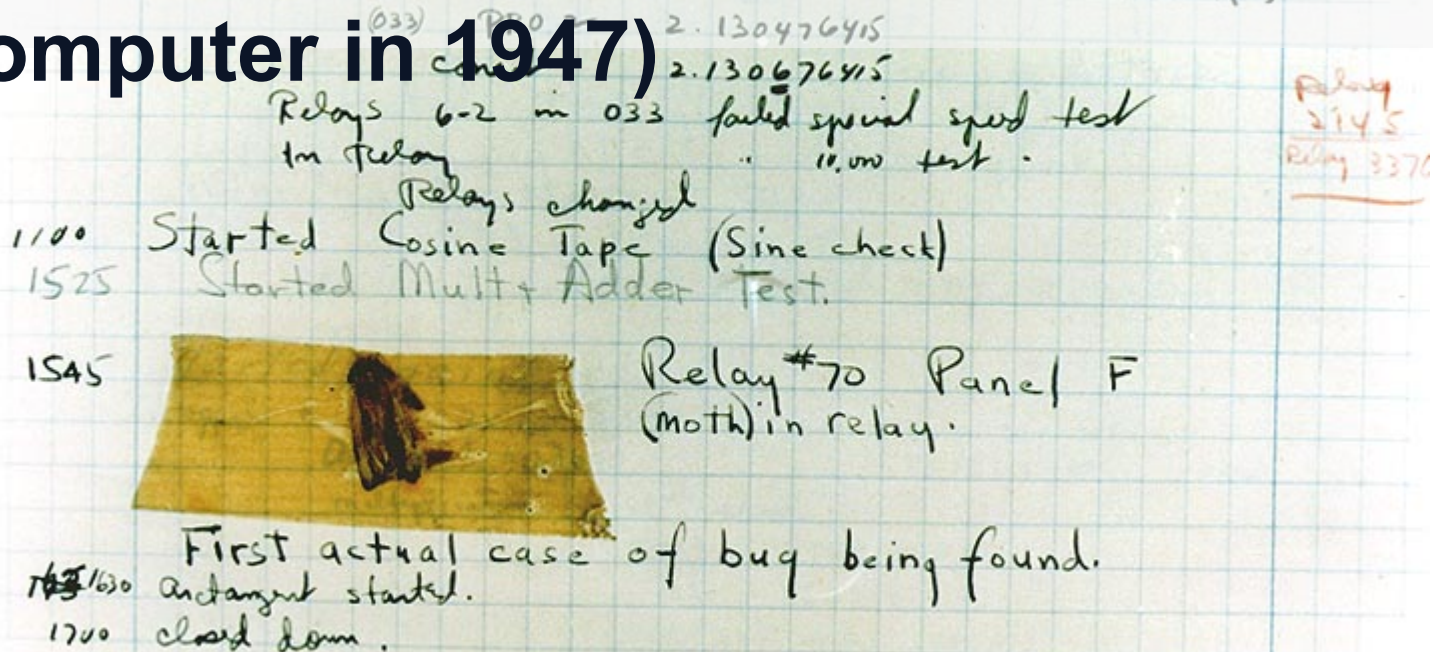 (033) PRO 2. 2.130476415
omputer in 1947)
2.130676415
Relays 6-2 in 033 failed special speed test
In Relay " 10,000 test .
Relays changed
Relay
2145
Relay 3370
1100 Started Cosine Tape (Sine check)
1525 Started Mult + Adder Test.
1545 Relay #70 Panel F
(moth) in relay.
First actual case of bug being found.
1630 arctangent started.
1700 closed down .